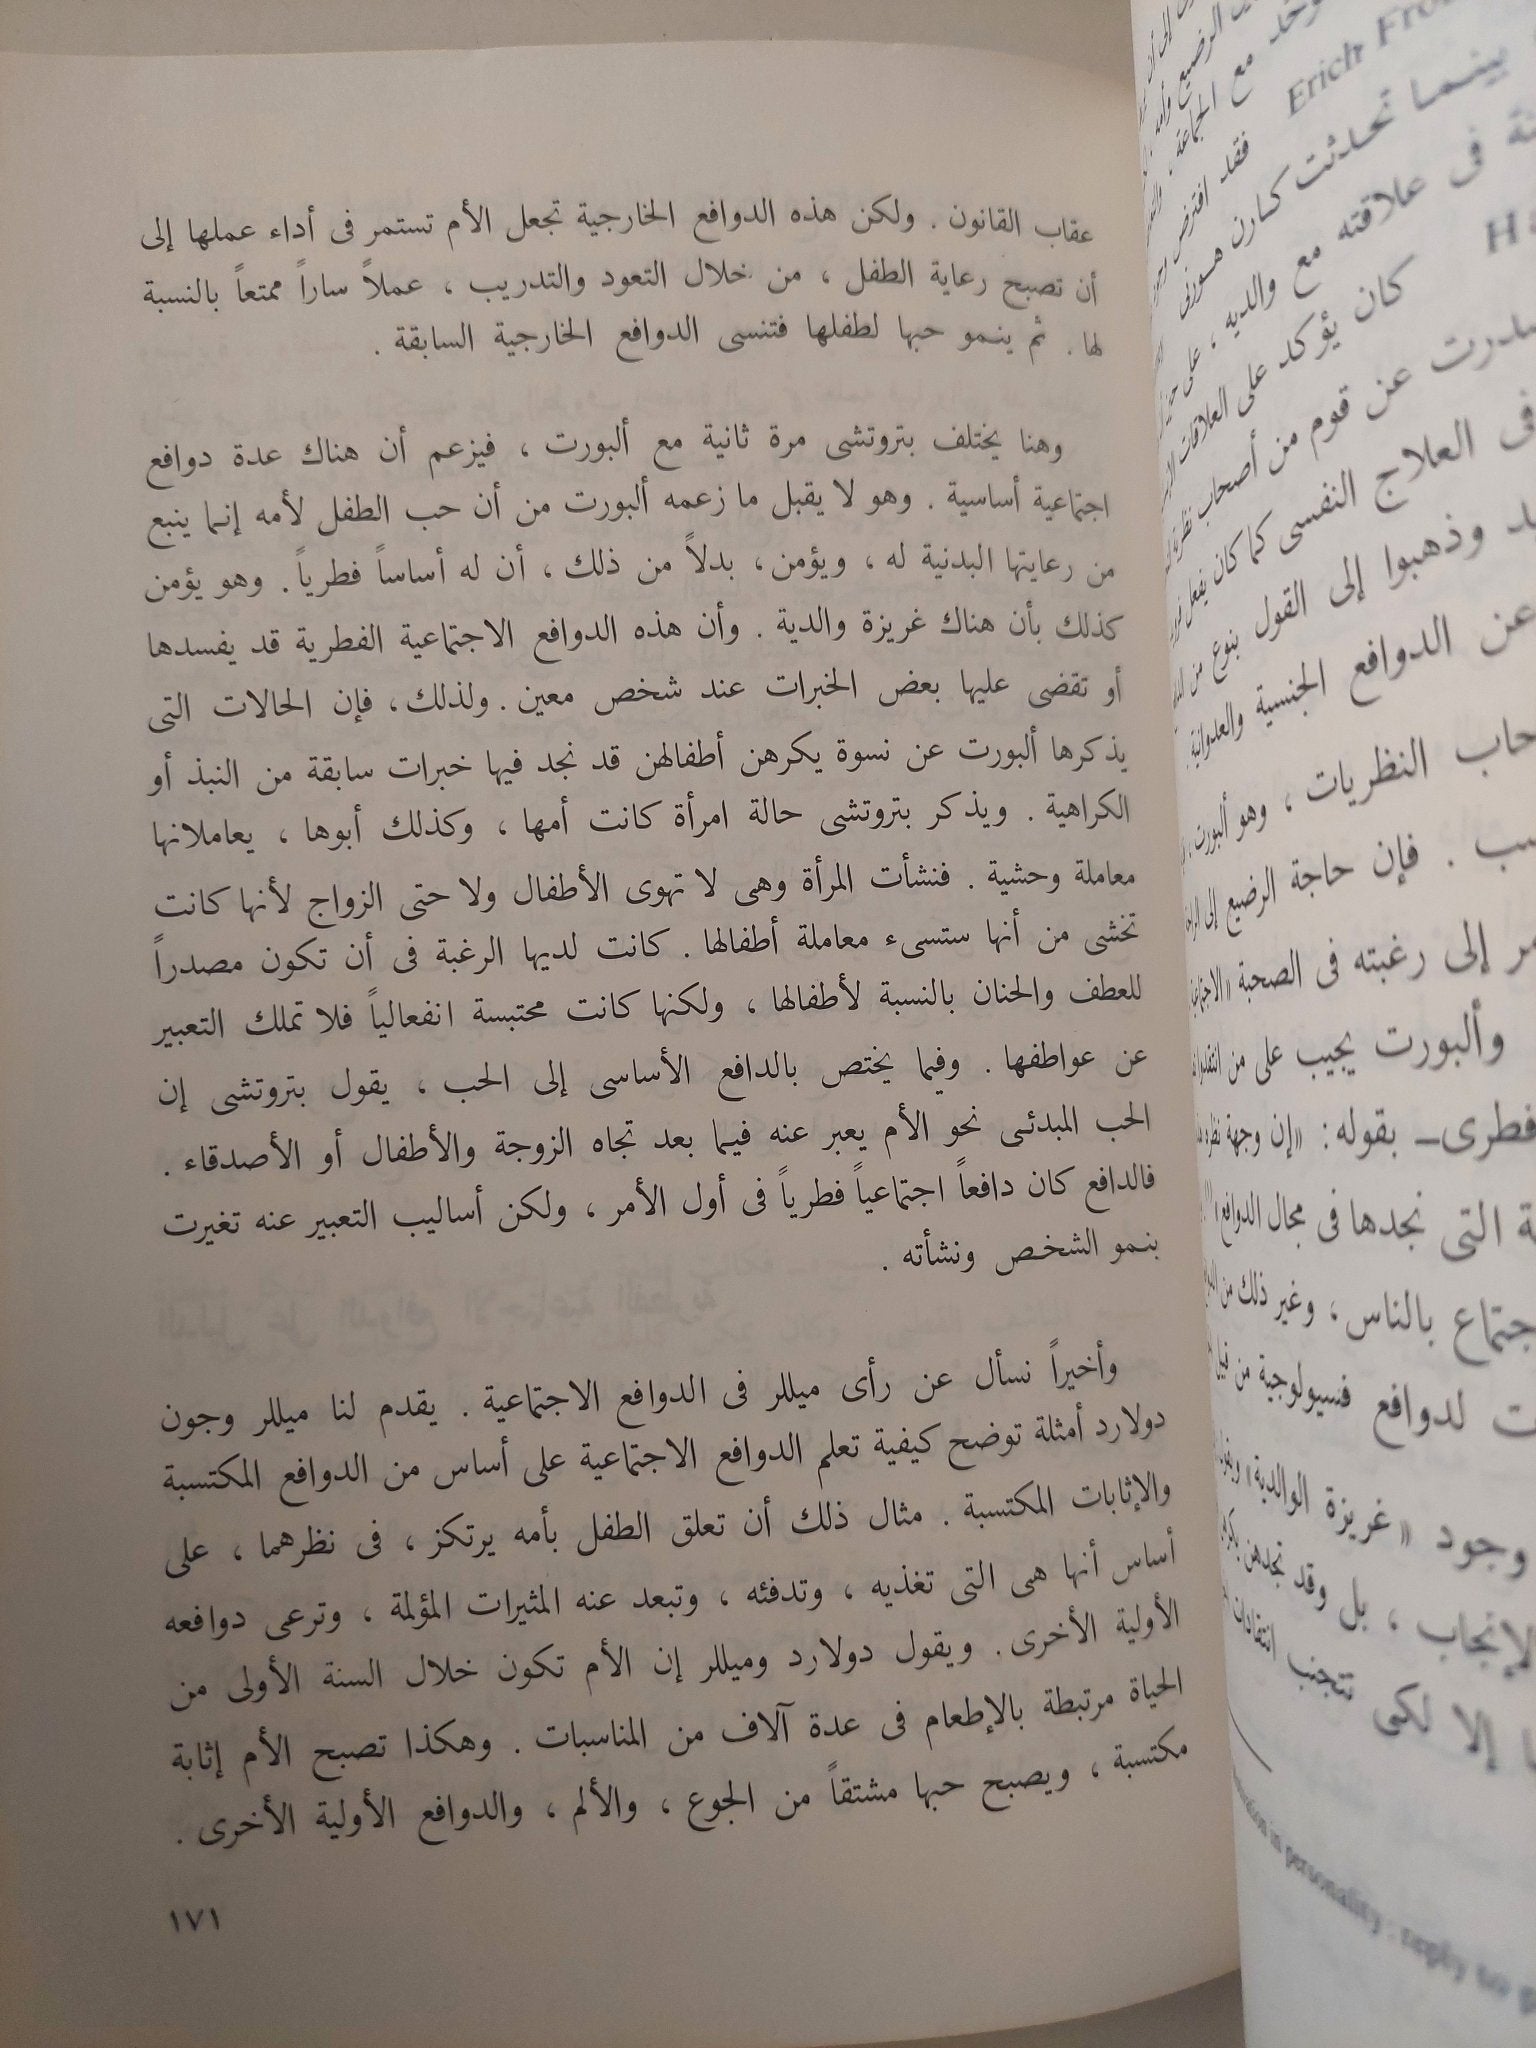 عقاب القانون . ولكن هذه الدوافع الخارجية تجعل الأم تستمر فى أداء عملها إلى
أن تصبح رعاية الطفل ، من خلال التعود والتدريب ، عملاً ساراً ممتعاً بالنسبة
لها . ثم ينمو حبها لطفلها فتنسى الدوافع الخارجية السابقة .
وهنا يختلف بتروتشى مرة ثانية مع ألبورت ، فيزعم أن هناك عدة دوافع
اجتماعية أساسية . وهو لا يقبل ما زعمه ألبورت من أن حب الطفل لأمه إنما ينبع
من رعايتها البدنية له ، ويؤمن ، بدلاً من ذلك ، أن له أساساً فطرياً . وهو يؤمن
كذلك بأن هناك غريزة والدية . وأن هذه الدوافع الاجتماعية الفطرية قد يفسدها
أو تقضى عليها بعض الخبرات عند شخص معين . ولذلك ، فإن الحالات التى
يذكرها ألبورت عن نسوة يكرهن أطفالهن قد نجد فيها خبرات سابقة من النبذ أو
الكراهية . ويذكر بتروتشى حالة امرأة كانت أمها ، وكذلك أبوها ، يعاملانها
معاملة وحشية . فنشأت المرأة وهى لا تهوى الأطفال ولا حتى الزواج لأنها كانت
تخشى من أنها ستسىء معاملة أطفالها . كانت لديها الرغبة فى أن تكون مصدراً
للعطف والحنان بالنسبة لأطفالها ، ولكنها كانت محتبسة انفعالياً فلا تملك التعبير
عن عواطفها . وفيما يختص بالدافع الأساسى إلى الحب ، يقول بتروتشى إن
الحب المبدئى نحو الأم يعبر عنه فيما بعد تجاه الزوجة والأطفال أو الأصدقاء .
فالدافع كان دافعاً اجتماعياً فطرياً فى أول الأمر ، ولكن أساليب التعبير عنه تغيرت
بنمو الشخص ونشأته .
وأخيراً نسأل عن رأى ميللر فى الدوافع الاجتماعية . يقدم لنا ميللر وجون
دولارد أمثلة توضح كيفية تعلم الدوافع الاجتماعية على أساس من الدوافع المكتسبة
والإثابات المكتسبة . مثال ذلك أن تعلق الطفل بأمه يرتكز ، فى نظرهما ، على
أساس أنها هى التى تغذيه ، وتدفئه ، وتبعد عنه المثيرات المؤلمة ، وترعى دوافعه
الأولية الأخرى . ويقول دولارد وميللر إن الأم تكون خلال السنة الأولى من
الحياة مرتبطة بالإطعام فى عدة آلاف من المناسبات . وهكذا تصبح الأم إثابة
مكتسبة ، ويصبح حبها مشتقاً من الجوع ، والألم ، والدوافع الأولية الأخرى .
١٧١
مع الجماعة
Erich
فقد افترض
بينما تحدثت كارن هورنى
فى علاقته مع والديه ، على
H
كان يؤكد على العلاقات
عن قوم من أصحاب نظرية
فى العلاج النفسى كما كان يفعل
وذهبوا إلى القول بنوع من
عن الدوافع الجنسية والعدوانية
النظريات ، وهو ألبورت
. فإن حاجة الرضيع إلى
إلى رغبته فى الصحبة
وألبورت يجيب على من
بقوله : «إن وجهة نظره
التى نجدها فى مجال الدوافع
بالناس ، وغير ذلك من
لدوافع فسيولوجية من قبيل
وجود «غريزة الوالدية»
الإنجاب ، بل وقد تجدهن
إلا لكى تتجنب انتقادات
in personality : reply to